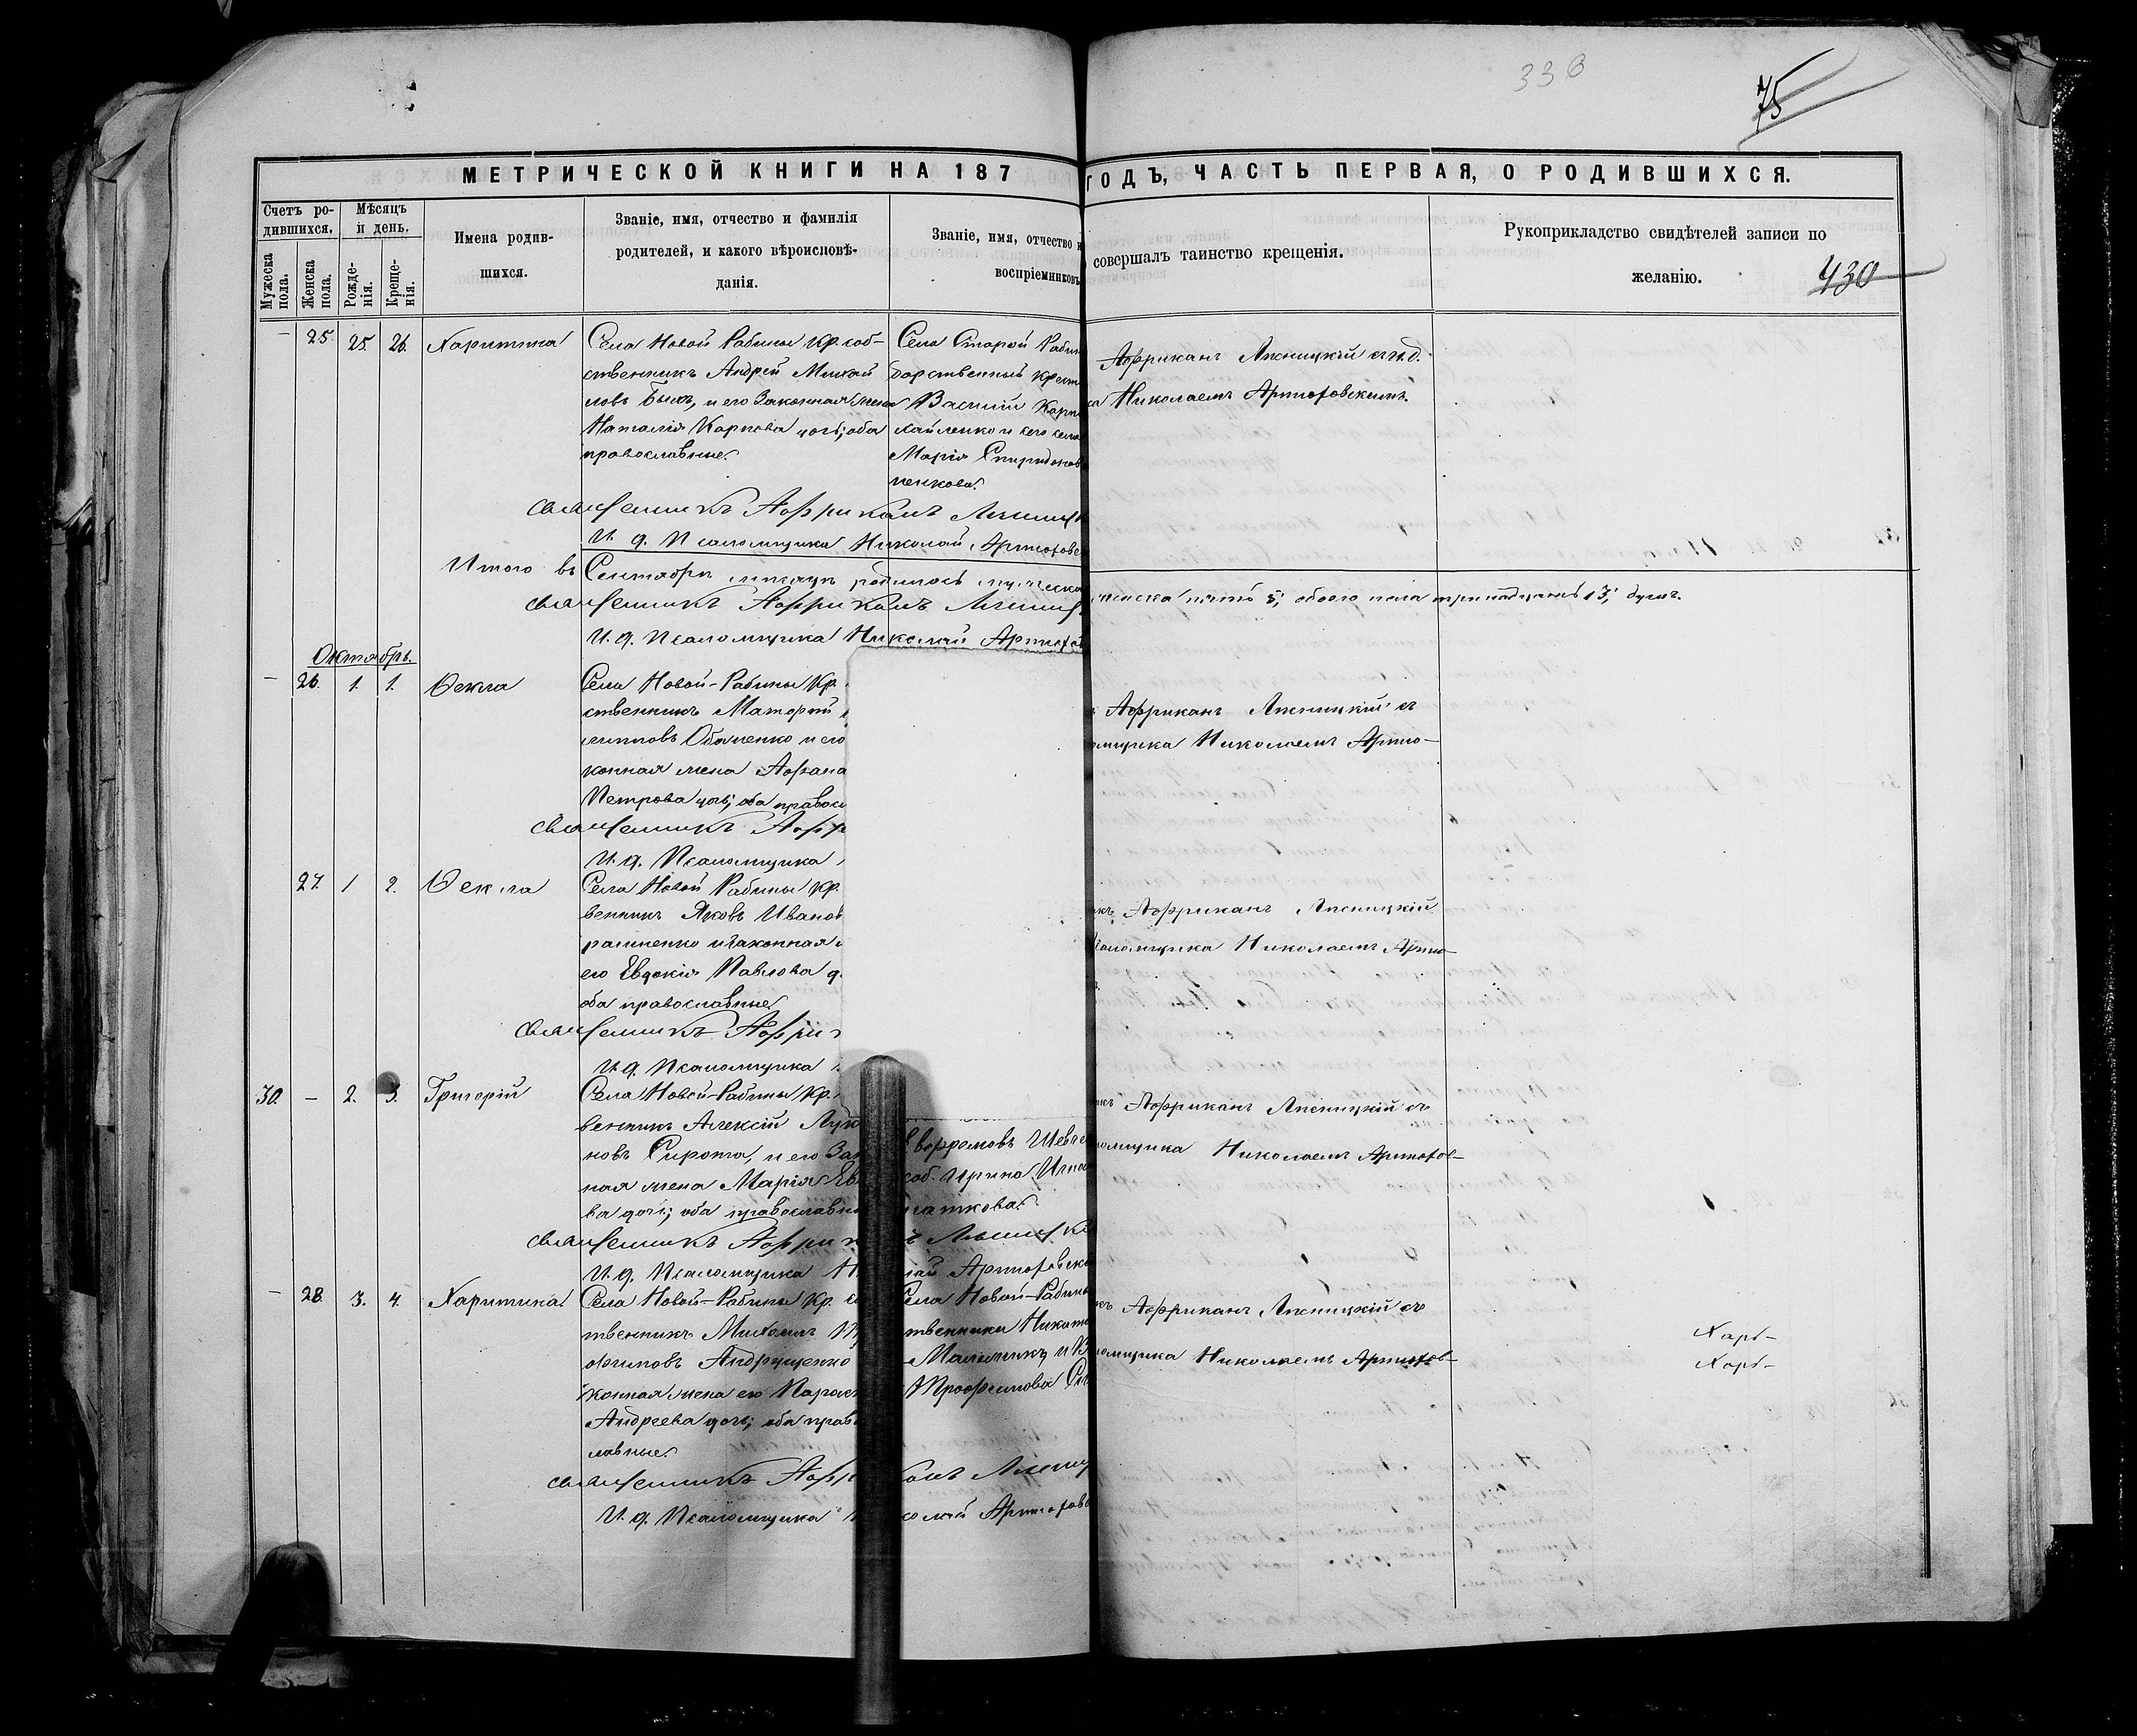 330
75
МЕТРИЧЕСКОЙ КНИГИ НА 187
ГОДЪ, ЧАСТЬ ПЕРВАЯ, О РОДИВШИХСЯ.
Счетъ ро-
дившихся.
Мужеска пола.
Женска пола.
Мѣсяцъ
и день.
Рожде-
нія.
Креще-
нія.
Имена родив-
шихся.
Званіе, имя, отчество и фамилія
родителей, и какого вѣроисповѣ-
данія.
Званіе, имя, отчество и
воспріемниковъ
совершалъ таинство крещенія.
Рукоприкладство свидѣтелей записи по
желанію.
430
— 25. 25. 26. Харитина
Села Новой Рабины Кр. соб-
ственникъ Андрей Михай
ловъ Быкъ, и его законная жена
Наталія Карпова дочь; оба
православные.
Села Старой Рабин
дарственный крест
Василій Карп
хайленко и его
Марія Спиридонов
ненкова.
Африканъ Лисницкій съ и. д.
Николаемъ Артюховскимъ.
Священникъ Африканъ Лисниц
И. д. Псаломщика Николай Артюховс
Итого въ Сентябрѣ мѣсяцѣ родилось мужеска
женска пять 5; обоего пола тринадцать 13; душъ.
Священникъ Африканъ Лисниц
И. д. Псаломщика Николай Артюхов
Октябрь.
— 26. 1. 1. Ѳекла
Села Новой-Рабины Кр.
ственникъ Матфей
липповъ Обаменко и его
конная жена Афана
Петрова дочь; оба правосл
Африканъ Лисницкій съ
омщика Николаемъ Артю-
Священникъ Афр
И. д. Псаломщика
27. 1 2. Ѳекла
Села Новой Рабины Кр.
венникъ Яковъ Иванов
раименко и законная
его Евдокія Павлова д.
оба православные
икъ Африканъ Лисницкій
саломщика Николаемъ Артю-
Священникъ Афри
И. д. Псаломщика
30. — 2. 3. Григорій
Села Новой-Рабины Кр.
венникъ Алексій Лук
новъ Сирота, и его Зак
ная жена Марія Ев
ва дочь; оба православны
Евфремовъ Шевче
соб. Ирина Игна
гаткова.
икъ Африканъ Лисницкій съ
омщика Николаемъ Артюхов-
Священникъ Африк Лисницк
И. д. Псаломщика Н лай Артюховск
— 28. 3. 4. Харитина
Села Новой-Рабины Кр. со
твенникъ Михаилъ
офимовъ Андрущенко
конная жена его Параск
Андреева дочь; оба право
лавные.
Села Новой-Рабины
твенники Никит
Маломикъ, и
Трофимова
икъ Африканъ Лисницкій съ
омщика Николаемъ Артюхов-
Харь-
Харь-
Священникъ Афр канъ Лисниц
И. д. Псаломщика колай Артюхов